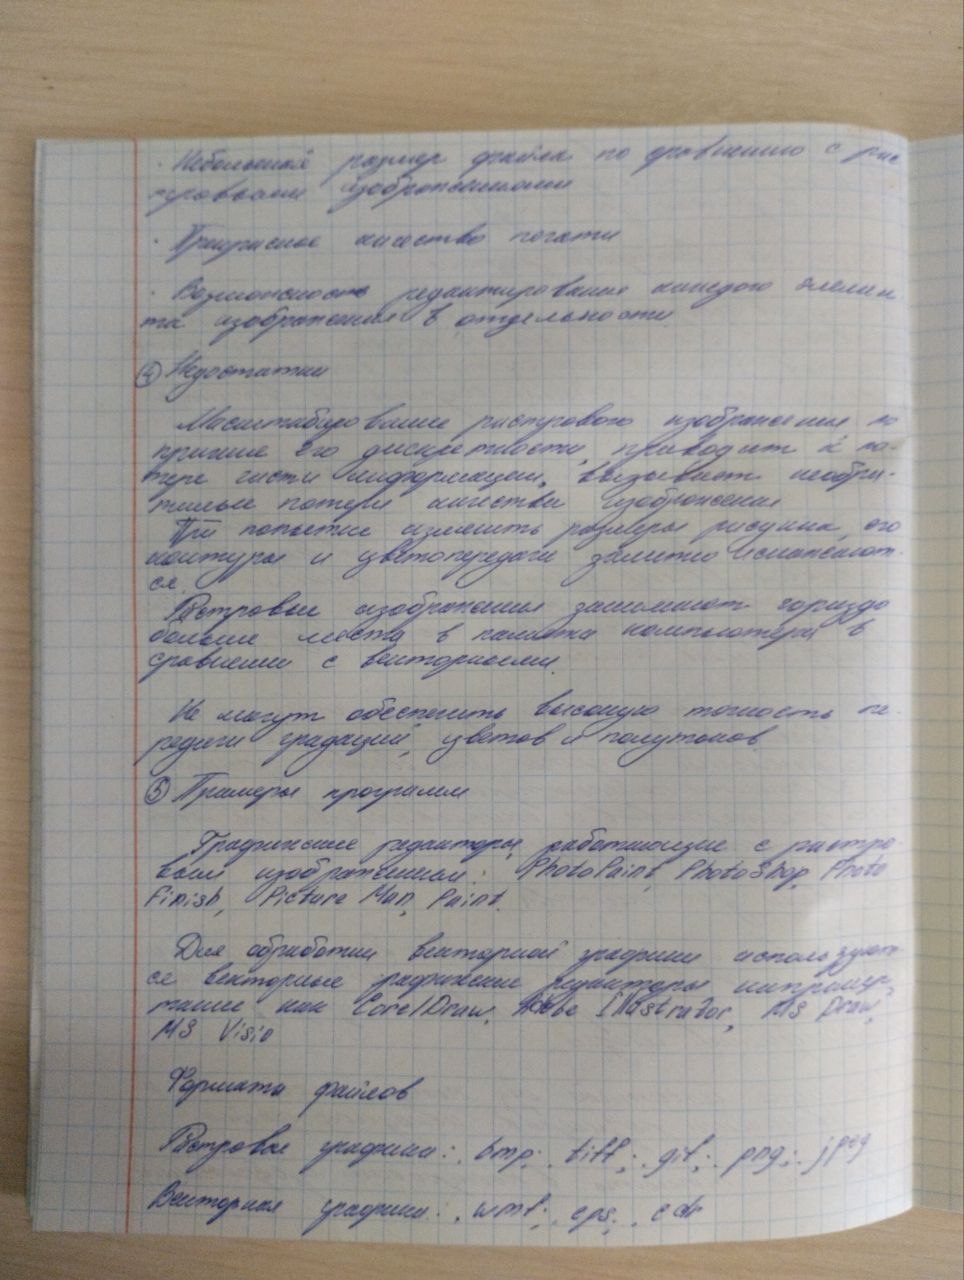 · Небольшой размер файла по сравнению с рас
тровыми изображениями
· Прекрасное качество печати
· Возможность редактирования каждого элемен
та изображения в отдельности
④ Недостатки
Масштабирование растрового изображения по
причине его дискретности, приводит к по-
тере части информации, вызывает необра-
тимые потери качества изображения
При попытке изменить размеры рисунка, его
контуры и цветопередача заметно искажают-
ся.
Растровые изображения занимают гораздо
больше места в памяти компьютера в
сравнении с векторными.
Не могут обеспечить высокую точность пе-
редачи градаций, цветов и полутонов
⑤ Примеры программ
Графические редакторы, работающие с растро-
вым изображением: PhotoPaint, PhotoShop, Photo
Finish, Picture Man, Paint.
Для обработки векторной графики используют-
ся векторные графические редакторы например,
такие как CorelDraw, Adobe Illustrator, MS Draw,
MS Visio
Форматы файлов
Растровая графика: .bmp; .tiff; .gif; .png; .jpeg
Векторная графика: .wmf; .eps; .cdr